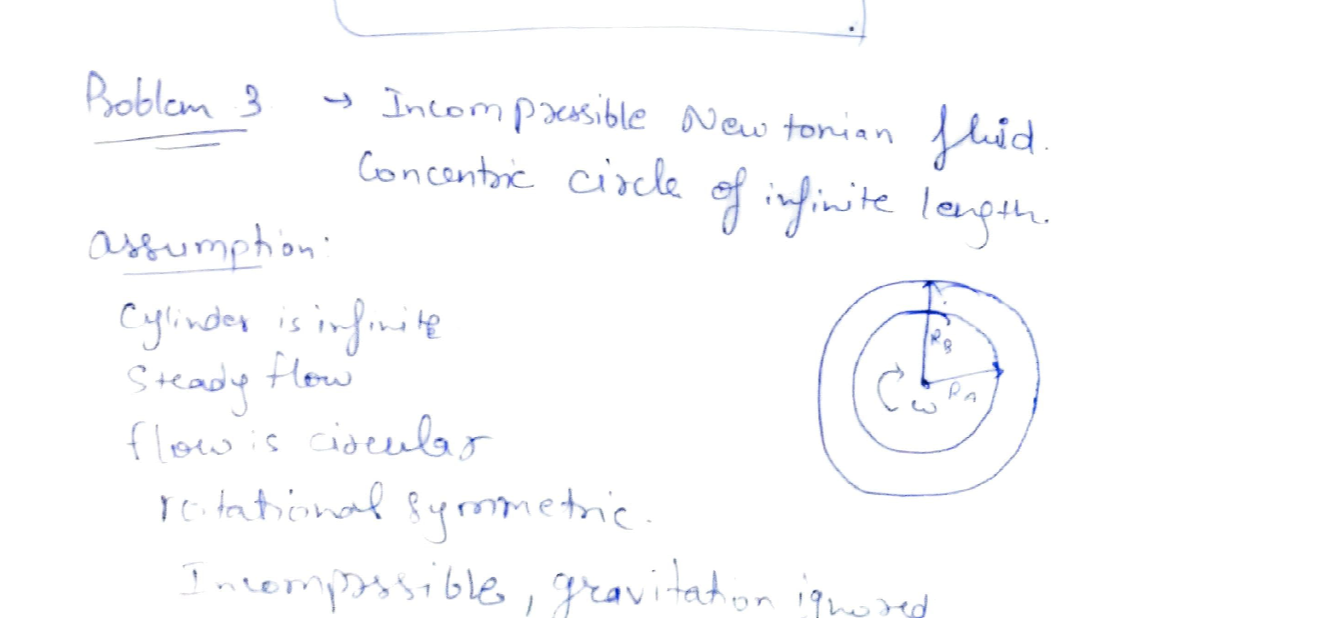 Problem 3 → Incompressible Newtonian fluid.
Concentric circle of infinite length.
assumption:
Cylinder is infinite
Steady flow
flow is circular
rotational symmetric.
Incompressible, gravitation ignored
R_B
ω R_A